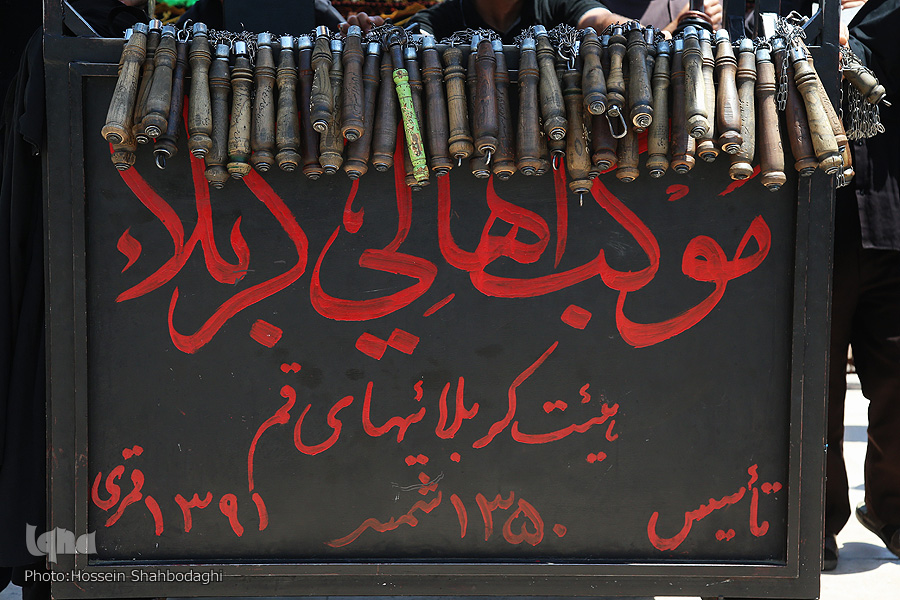 موكب اهالي كربلاء
هیئت کربلائیهای قم
تأسیس ۱۳۵۰ شمسی ۱۳۹۱ قمری
iqna
Photo:Hossein Shahbodaghi